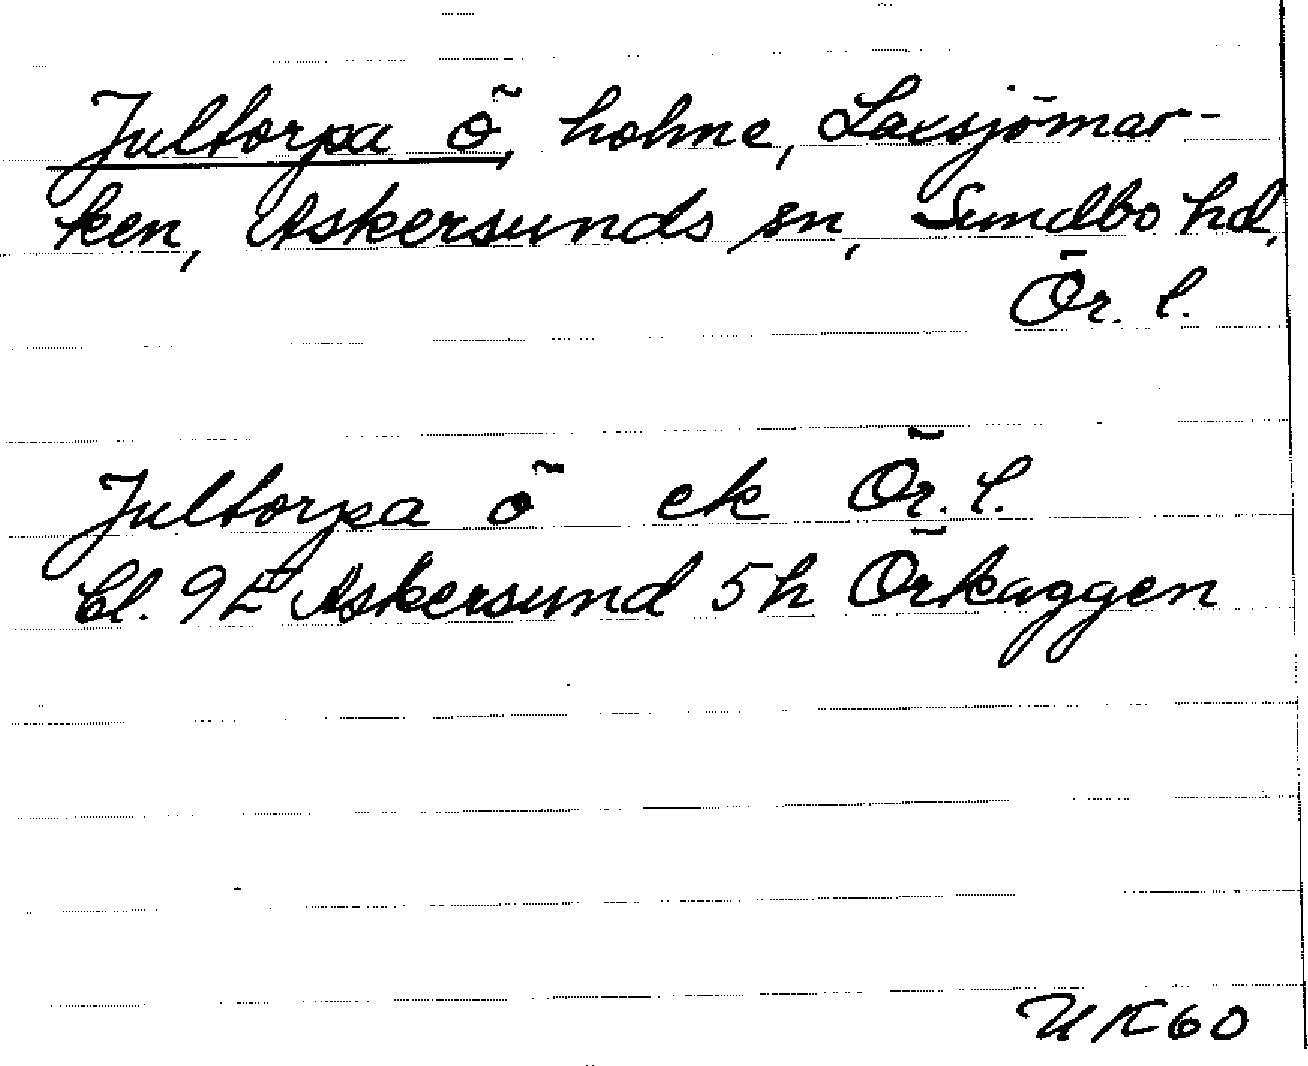 Jultorpa ö, holme, Laxsjömar-
ken, Askersunds sn, Sundbo hd,
Ör. l.
Jultorpa ö ek Ör. l.
bl. 9E Askersund 5h Örkaggen
UK60